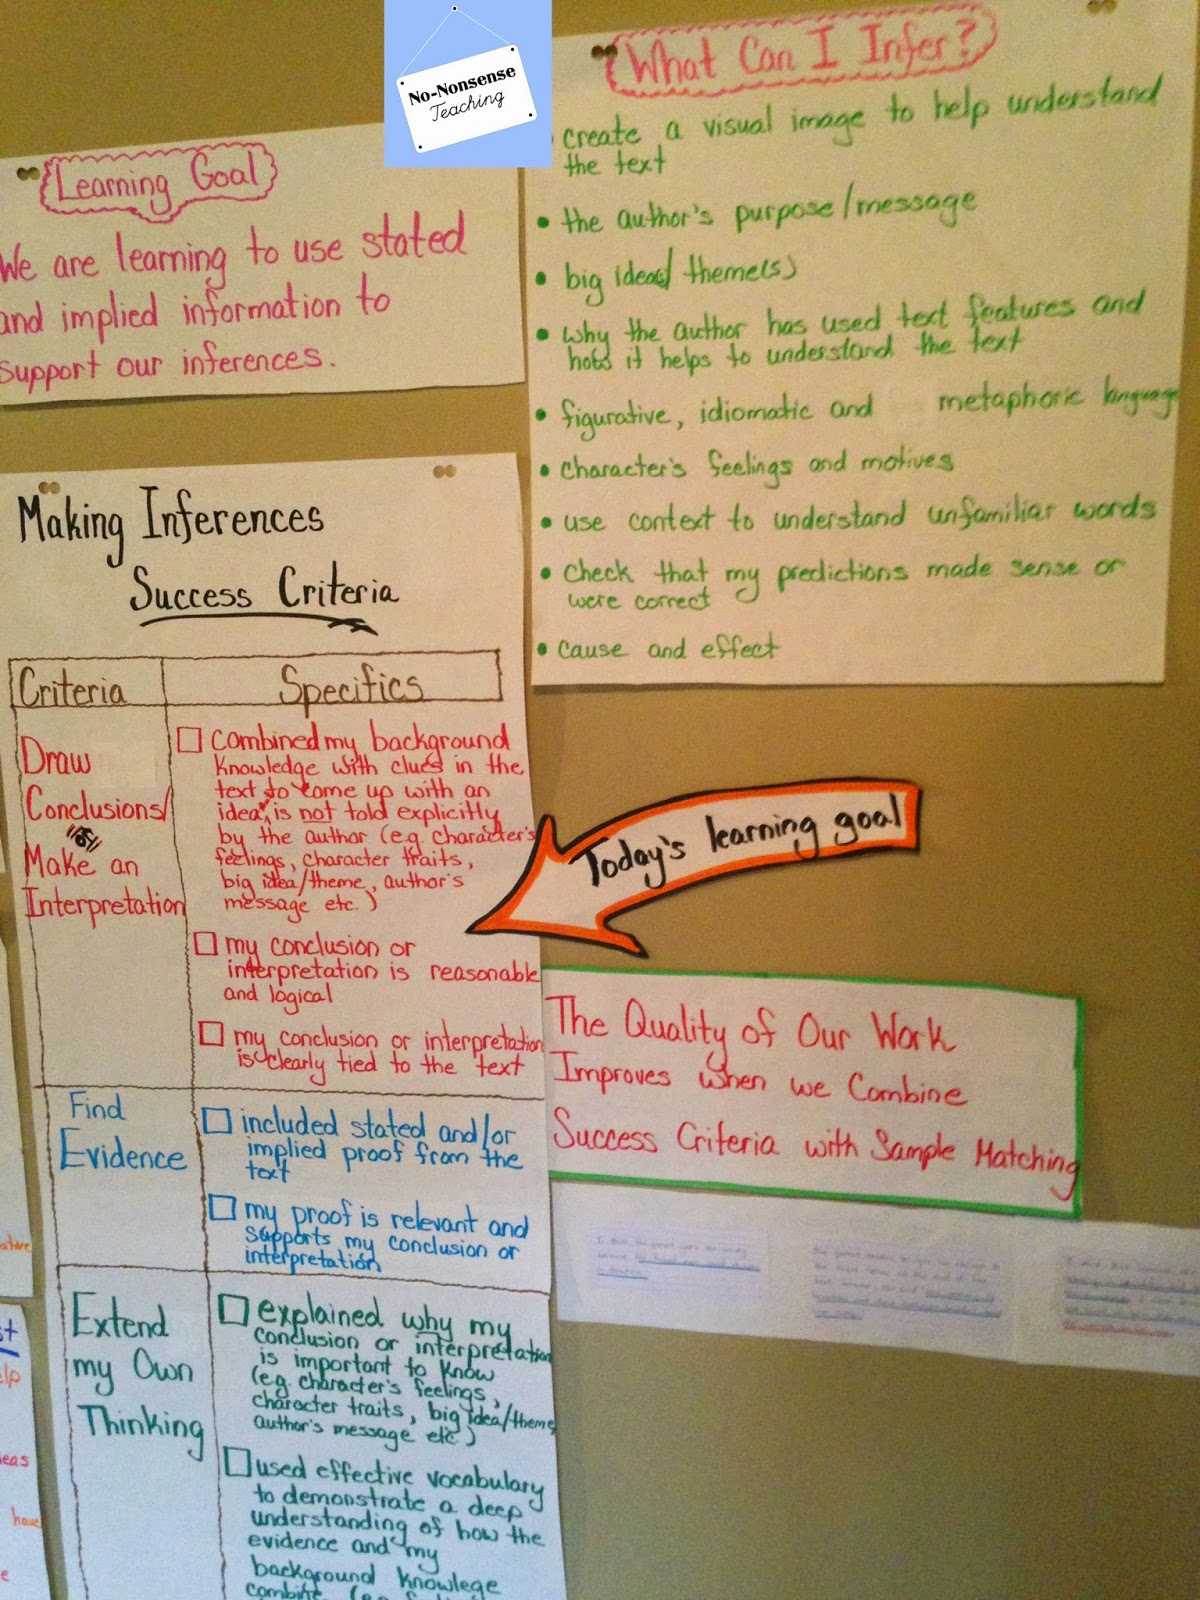 No-Nonsense
Teaching
Learning Goal
We are learning to use stated
and implied information to
support our inferences.
What Can I Infer?
• create a visual image to help understand
the text
• the author's purpose/message
• big ideas/themes(s)
• why the author has used text features and
how it helps to understand the text
• figurative, idiomatic and metaphoric language
• character's feelings and motives
• use context to understand unfamiliar words
• check that my predictions made sense or
were correct
• cause and effect
Making Inferences
Success Criteria
Criteria
Specifics
Draw
Conclusions/
Make an
Interpretation
□ combined my background
knowledge with clues in the
text to come up with an
idea, is not told explicitly
by the author (e.g. character's
feelings, character traits,
big idea/theme, author's
message etc.)
□ my conclusion or
interpretation is reasonable
and logical
□ my conclusion or interpretation
is clearly tied to the text
Find
Evidence
□ included stated and/or
implied proof from the
text
□ my proof is relevant and
supports my conclusion or
interpretation
Extend
my Own
Thinking
□ explained why my
conclusion or interpretation
is important to know
(e.g. character's feelings,
character traits, big idea/theme,
author's message etc.)
□ used effective vocabulary
to demonstrate a deep
understanding of how the
evidence and my
background knowlege
combine
Today's learning goal
The Quality of Our Work
Improves when we Combine
Success Criteria with Sample Matching